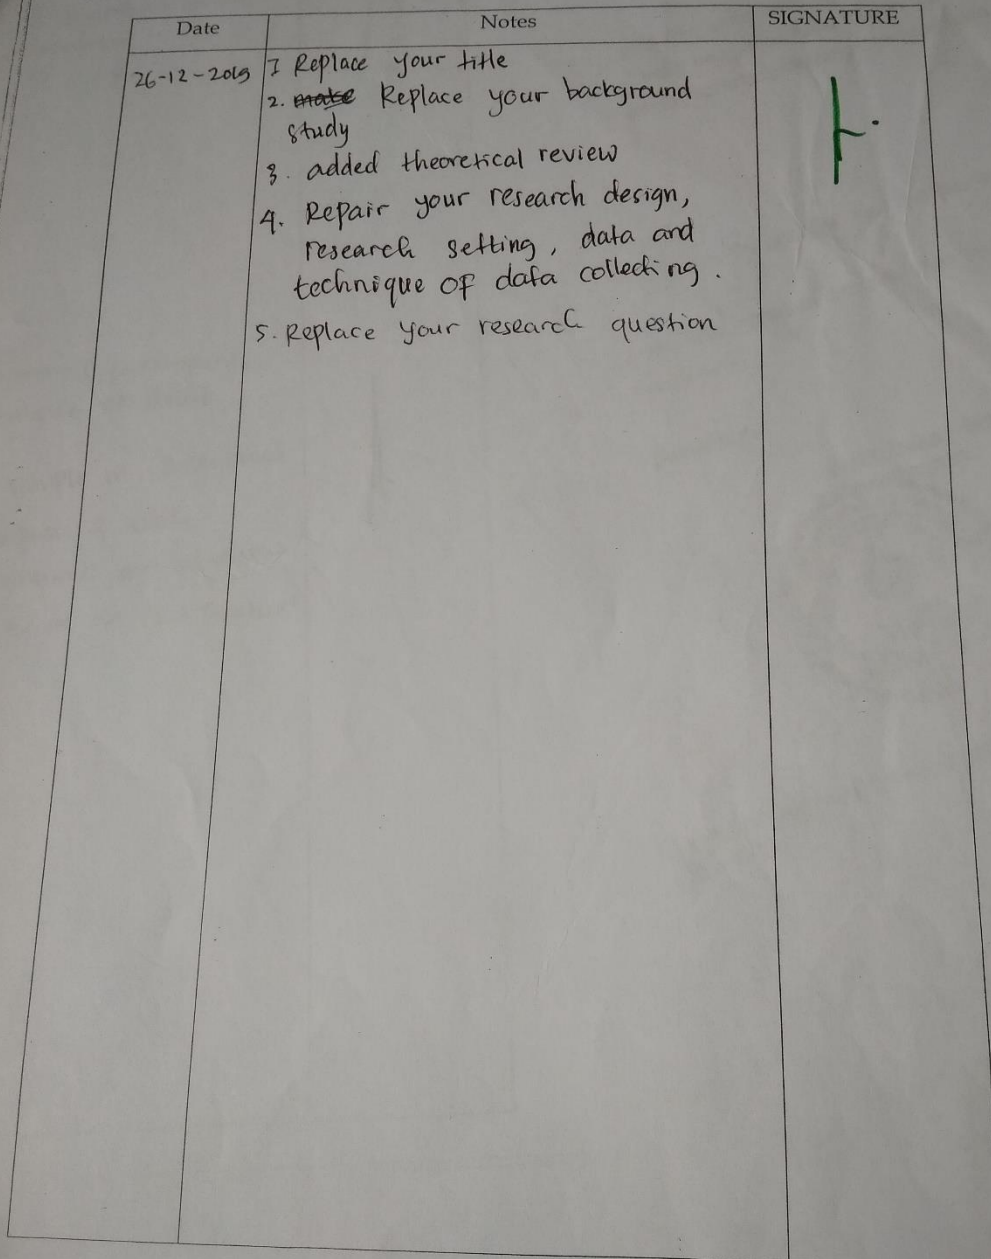 Date Notes SIGNATURE
26-12-2019 1 Replace your title
2. make Replace your background
study
3. added theoretical review
4. Repair your research design,
research setting, data and
technique of data collecting.
5. Replace your research question